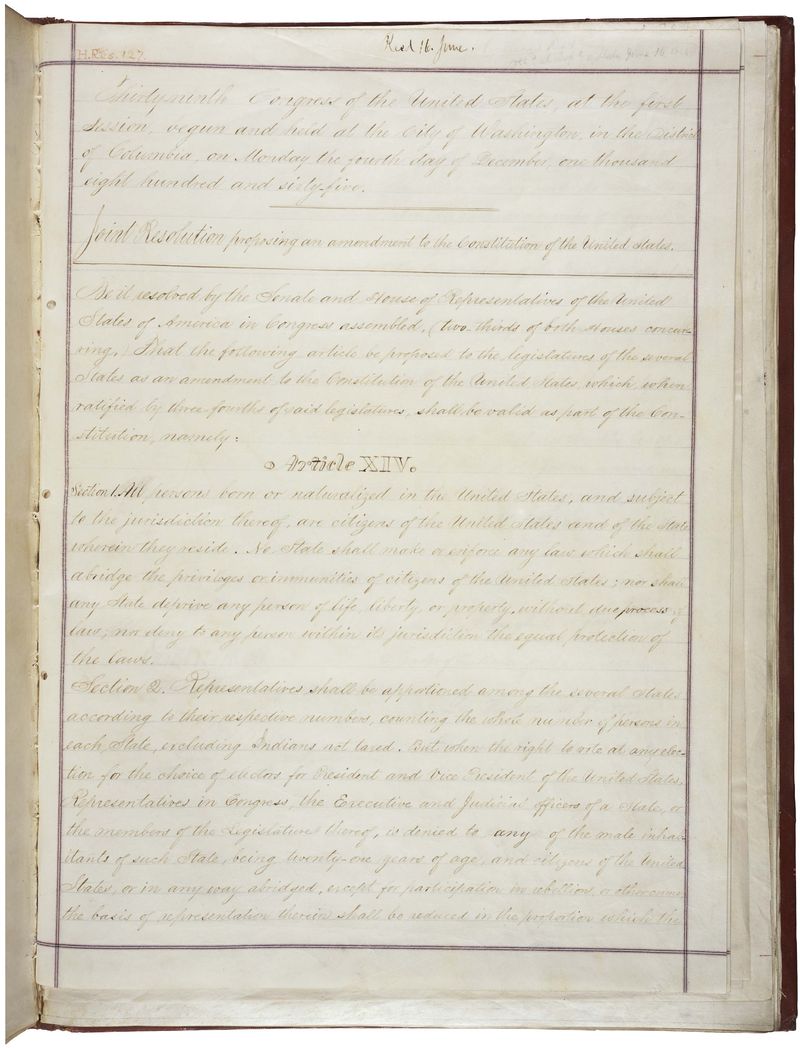 H.Res. 127.
Recd 16. June.
Thirty-ninth Congress of the United States, at the first
session, begun and held at the City of Washington, in the District
of Columbia, on Monday the fourth day of December, one thousand
eight hundred and sixty-five.
Joint Resolution proposing an amendment to the Constitution of the United States.
Be it resolved by the Senate and House of Representatives of the United
States of America in Congress assembled, (two-thirds of both Houses concur-
ring,) That the following article be proposed to the legislatures of the several
States as an amendment to the Constitution of the United States, which, when
ratified by three-fourths of said legislatures, shall be valid as part of the Con-
stitution, namely:
Article XIV.
Section 1. All persons born or naturalized in the United States, and subject
to the jurisdiction thereof, are citizens of the United States and of the State
wherein they reside. No State shall make or enforce any law which shall
abridge the privileges or immunities of citizens of the United States; nor shall
any State deprive any person of life, liberty, or property, without due process of
law; nor deny to any person within its jurisdiction the equal protection of
the laws.
Section 2. Representatives shall be apportioned among the several States
according to their respective numbers, counting the whole number of persons in
each State, excluding Indians not taxed. But when the right to vote at any elec-
tion for the choice of electors for President and Vice President of the United States,
Representatives in Congress, the Executive and Judicial officers of a State, or
the members of the Legislature thereof, is denied to any of the male inhab-
itants of such State, being twenty-one years of age, and citizens of the United
States, or in any way abridged, except for participation in rebellion, or other crime,
the basis of representation therein shall be reduced in the proportion which the